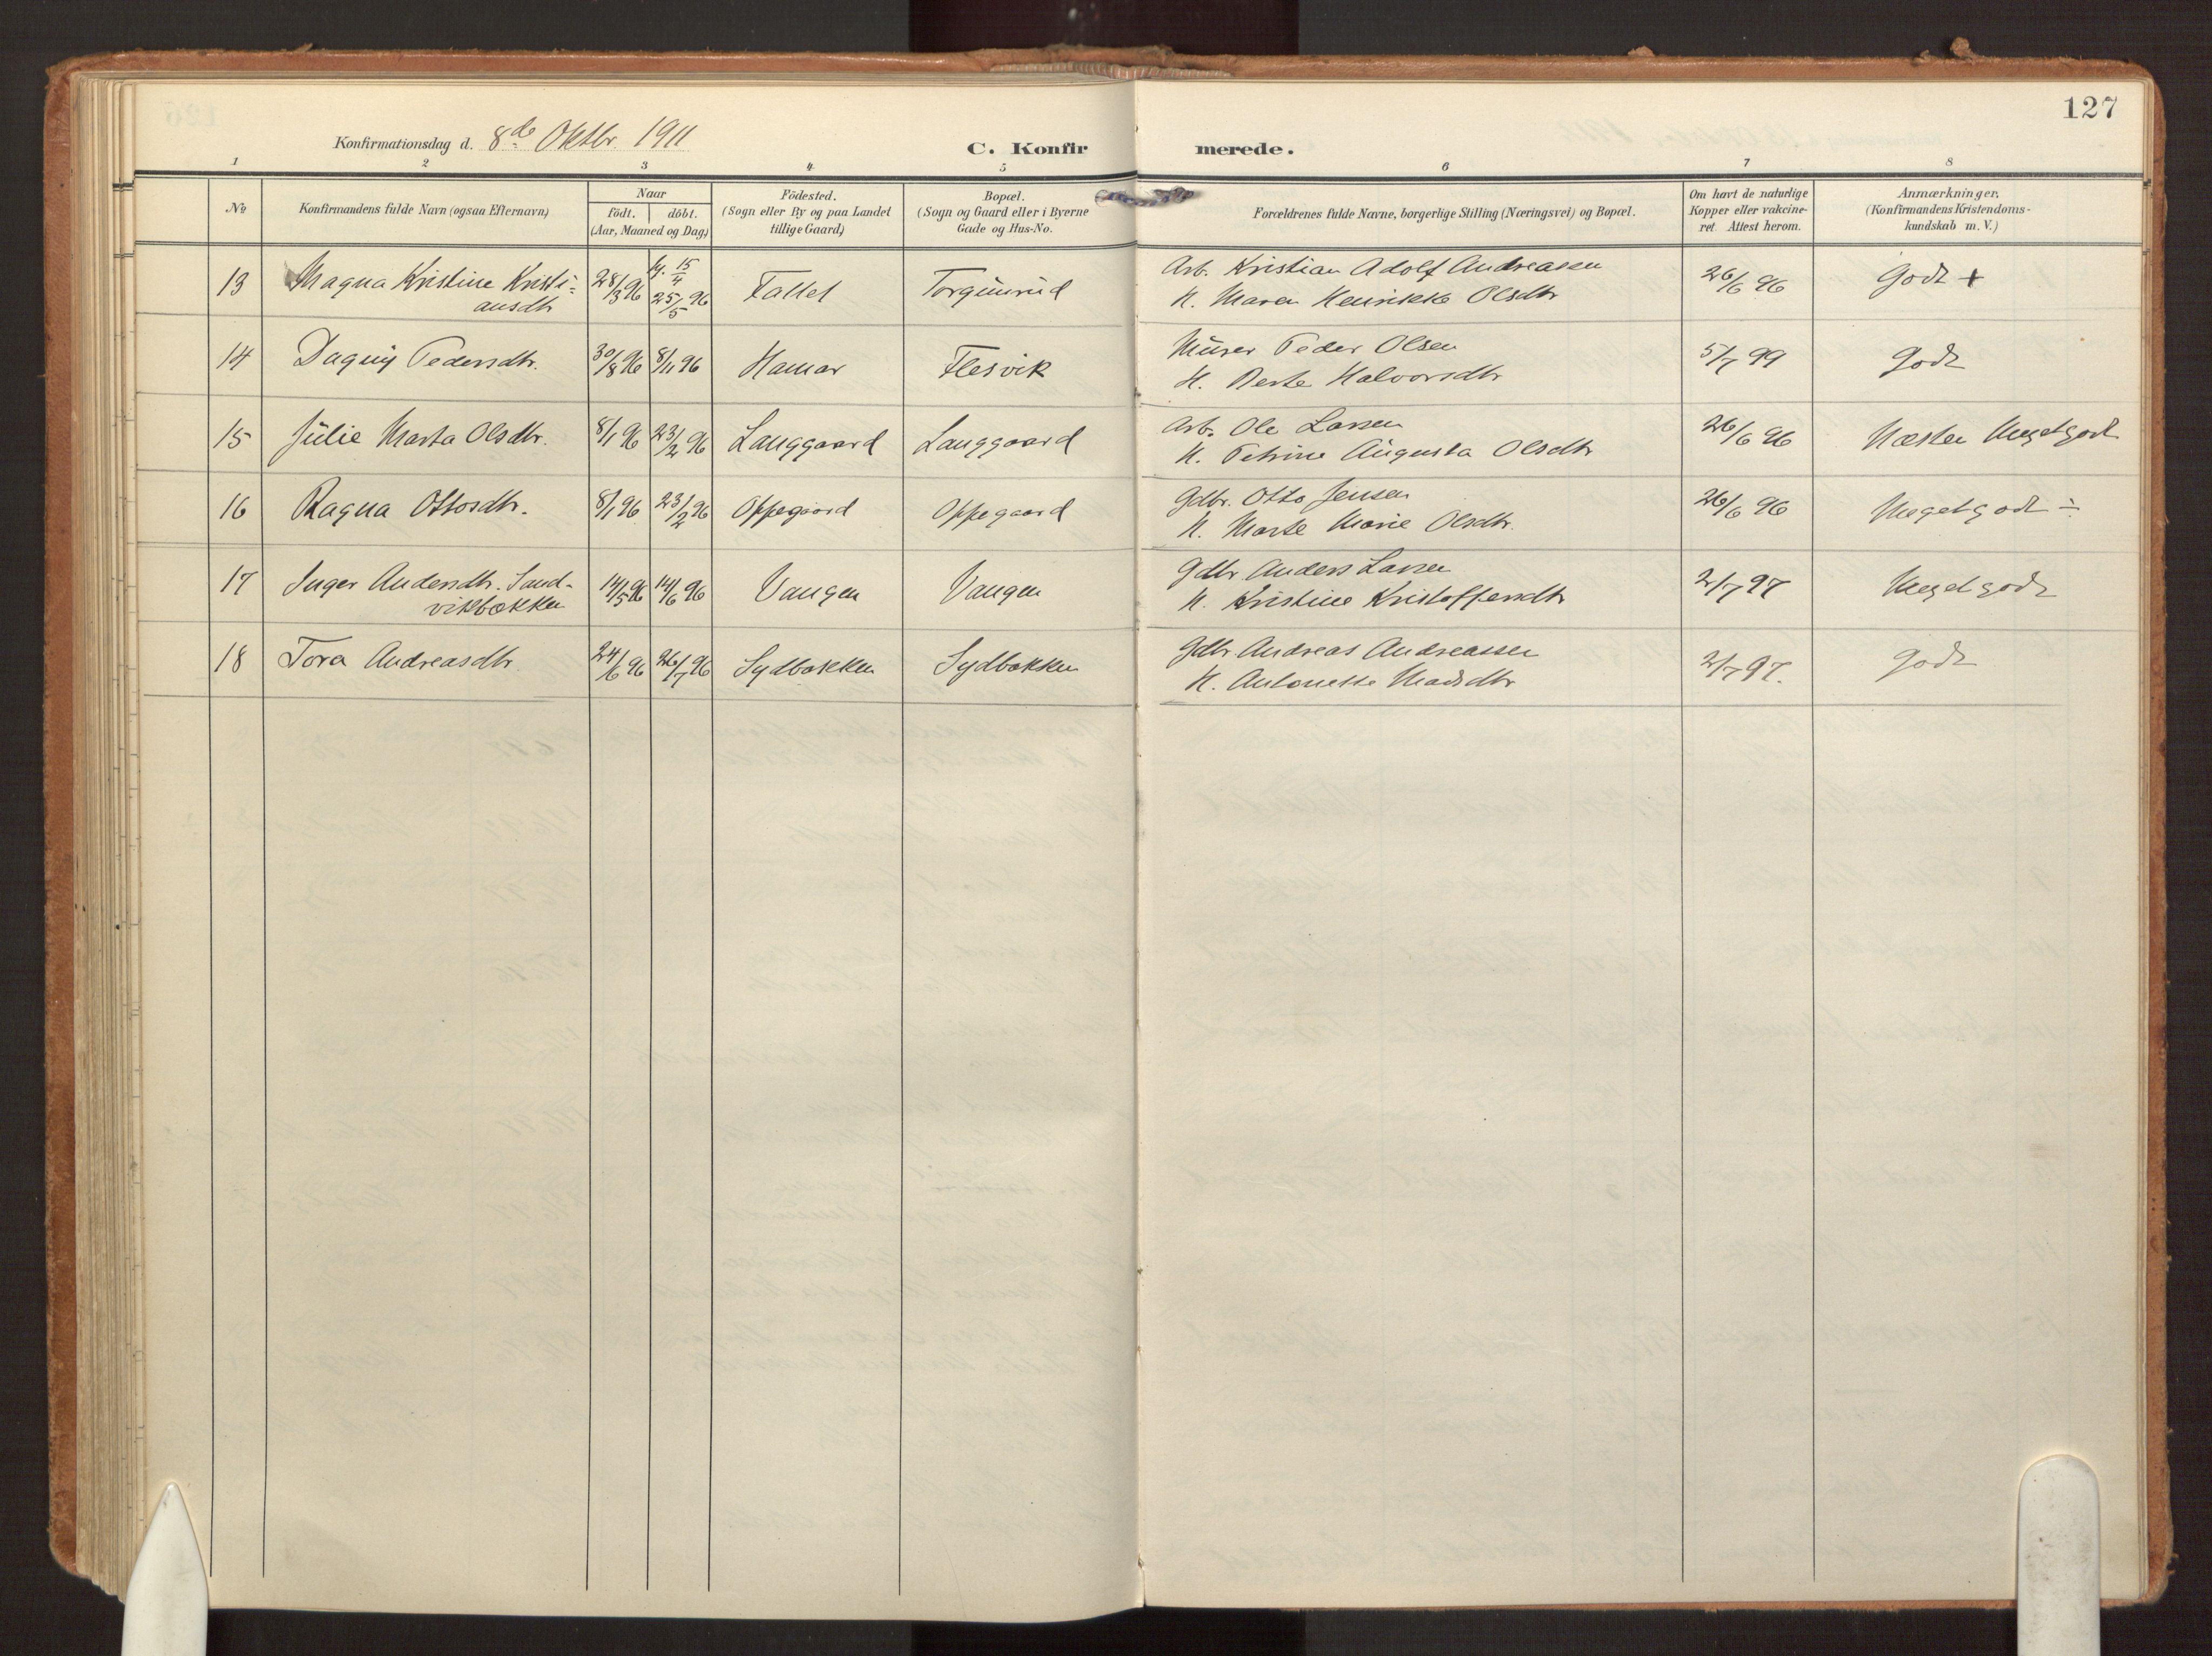 127
Konfirmationsdag d. 8de Oktbr 1911
C. Konfirmerede.
1 2 3 4 5 6 7 8
No
Konfirmandens fulde Navn (ogsaa Efternavn)
Naar
födt. döbt.
(Aar, Maaned og Dag)
Födested.
(Sogn eller By og paa Landet
tillige Gaard)
Bopæl.
(Sogn og Gaard eller i Byerne
Gade og Hus-No.
Forældrenes fulde Navne, borgerlige Stilling (Næringsvei) og Bopæl.
Om havt de naturlige
Kopper eller vakcine-
ret. Attest herom.
Anmærkninger.
(Konfirmandens Kristendoms-
kundskab m. V.)
13 Magna Kristine Kristi- 28/3 96 hj. 15/4 25/5 96 Fallet Torgunrud Arb. Kristian Adolf Andreassen 26/6 96 Godt +
ansdtr H. Maren Henrikke Olsdtr
14 Dagny Pedersdtr. 30/8 96 8/11 96 Hamar Flesvik Murer Peder Olsen 5/7 99 Godt
H. Berte Halvorsdtr
15 Julie Marta Olsdtr. 8/1 96 23/2 96 Langgaard Langgaard Arb. Ole Larsen 26/6 96 Næsten Meget godt
H. Petrine Augusta Olsdtr
16 Ragna Ottosdtr. 8/1 96 23/2 96 Oppegaard Oppegaard Gdbr. Otto Jensen 26/6 96 Meget godt ÷
H. Marte Marie Olsdtr.
17 Inger Andersdtr. Sand- 14/5 96 14/6 96 Vangen Vangen Gdbr Anders Larsen 2/7 97 Meget godt
vikbækken H. Kristine Kristoffersdtr
18 Tora Andreasdtr 24/6 96 26/7 96 Sydbakken Sydbakken Gdbr Andreas Andreassen 2/7 97. Godt
H. Antonette Madsdtr